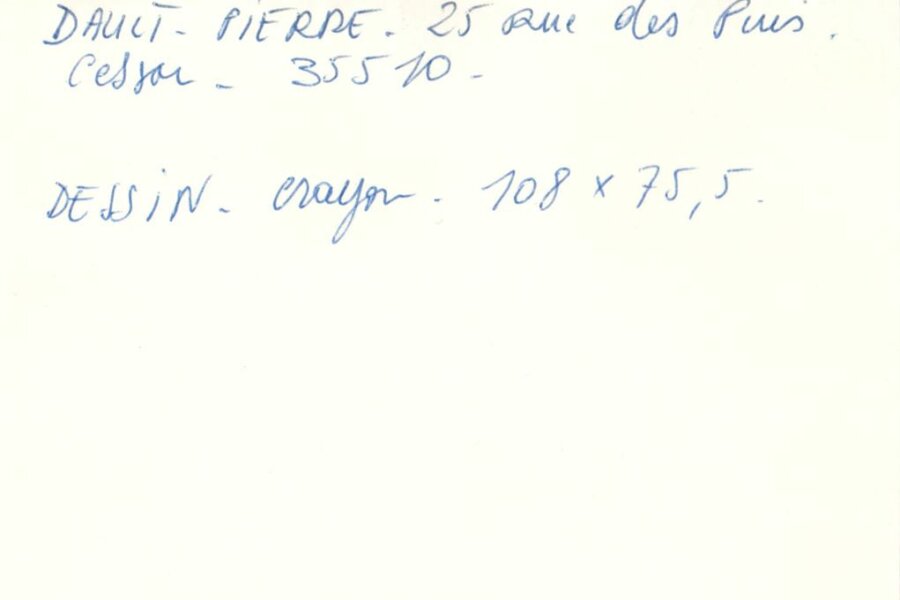 DAULT - PIERRE - 25 rue des Puis.
Cesson - 35510 -
DESSIN - crayon - 108 x 75,5.